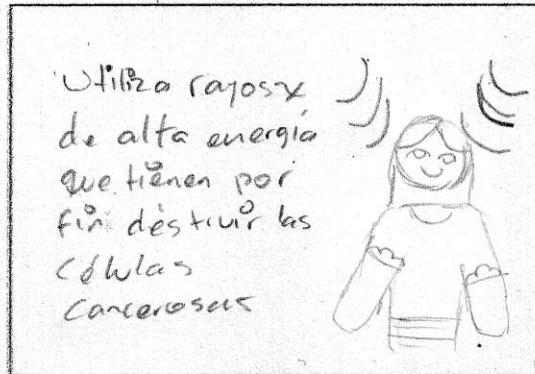 Utiliza rayos x
de alta energía
que tienen por
fin destivir las
células
cancerosas